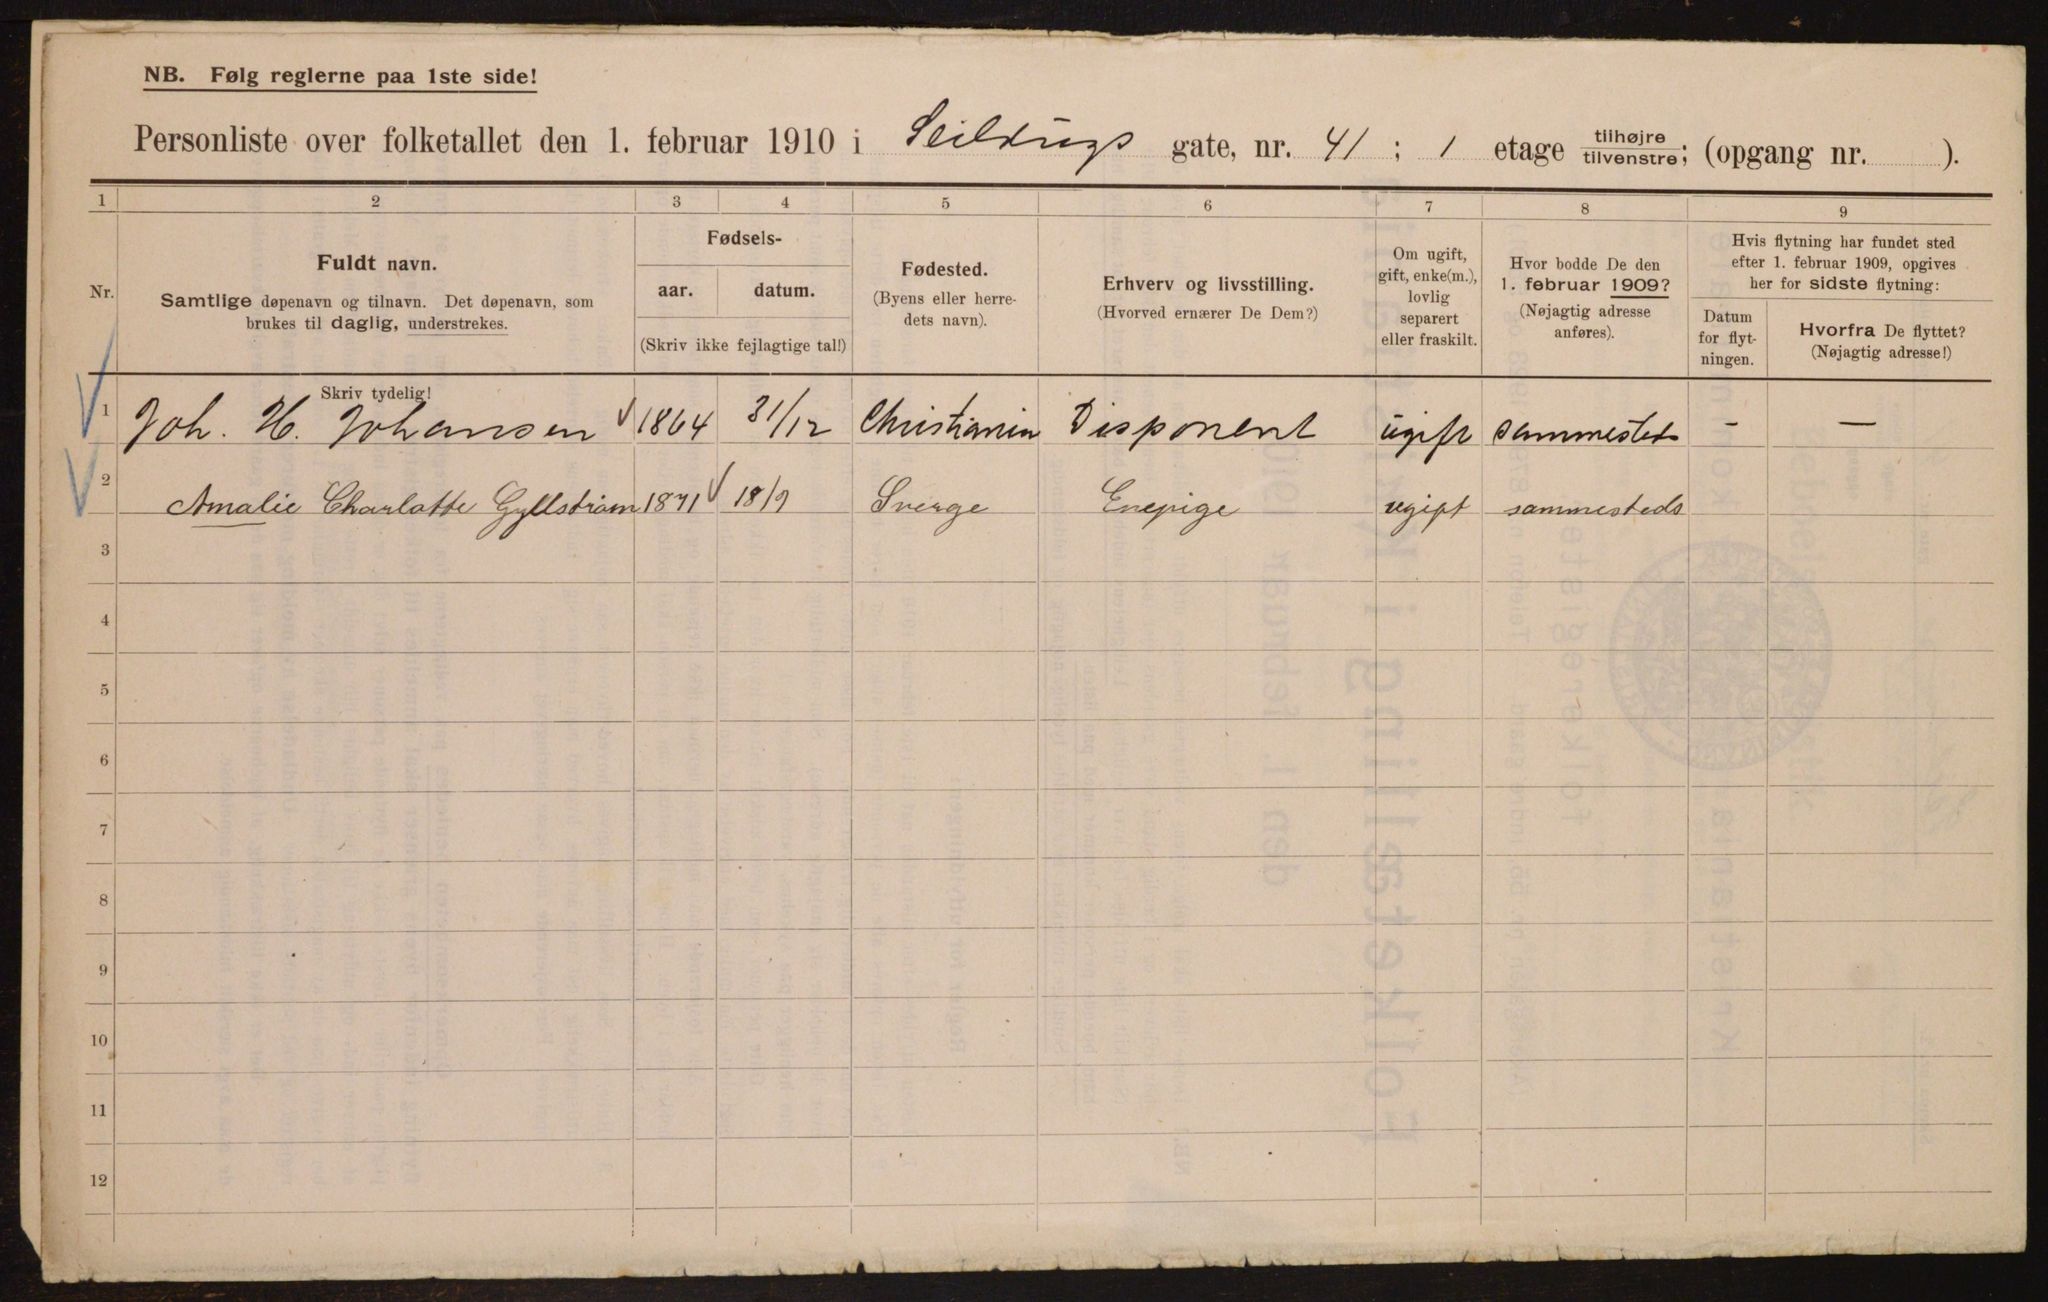 NB. Følg reglerne paa 1ste side!
Personliste over folketallet den 1. februar 1910 i Seildugs gate, nr. 41 ; 1 etage tilhøjre/tilvenstre; (opgang nr. ).
1 2 3 4 5 6 7 8 9
Nr.
Fuldt navn.
Samtlige døpenavn og tilnavn. Det døpenavn, som
brukes til daglig, understrekes.
Fødsels-
aar. datum.
(Skriv ikke fejlagtige tal!)
Fødested.
(Byens eller herre-
dets navn).
Erhverv og livsstilling.
(Hvorved ernærer De Dem?)
Om ugift,
gift, enke(m.),
lovlig
separert
eller fraskilt.
Hvor bodde De den
1. februar 1909?
(Nøjagtig adresse
anføres).
Hvis flytning har fundet sted
efter 1. februar 1909, opgives
her for sidste flytning:
Datum
for flyt-
ningen.
Hvorfra De flyttet?
(Nøjagtig adresse!)
Skriv tydelig!
1 Joh. H. Johansen 1864 31/12 Christiania Disponent ugift sammesteds - —
2 Amalie Charlotte Gyllstrøm 1871 18/9 Sverge Enepige ugift sammesteds
3
4
5
6
7
8
9
10
11
12